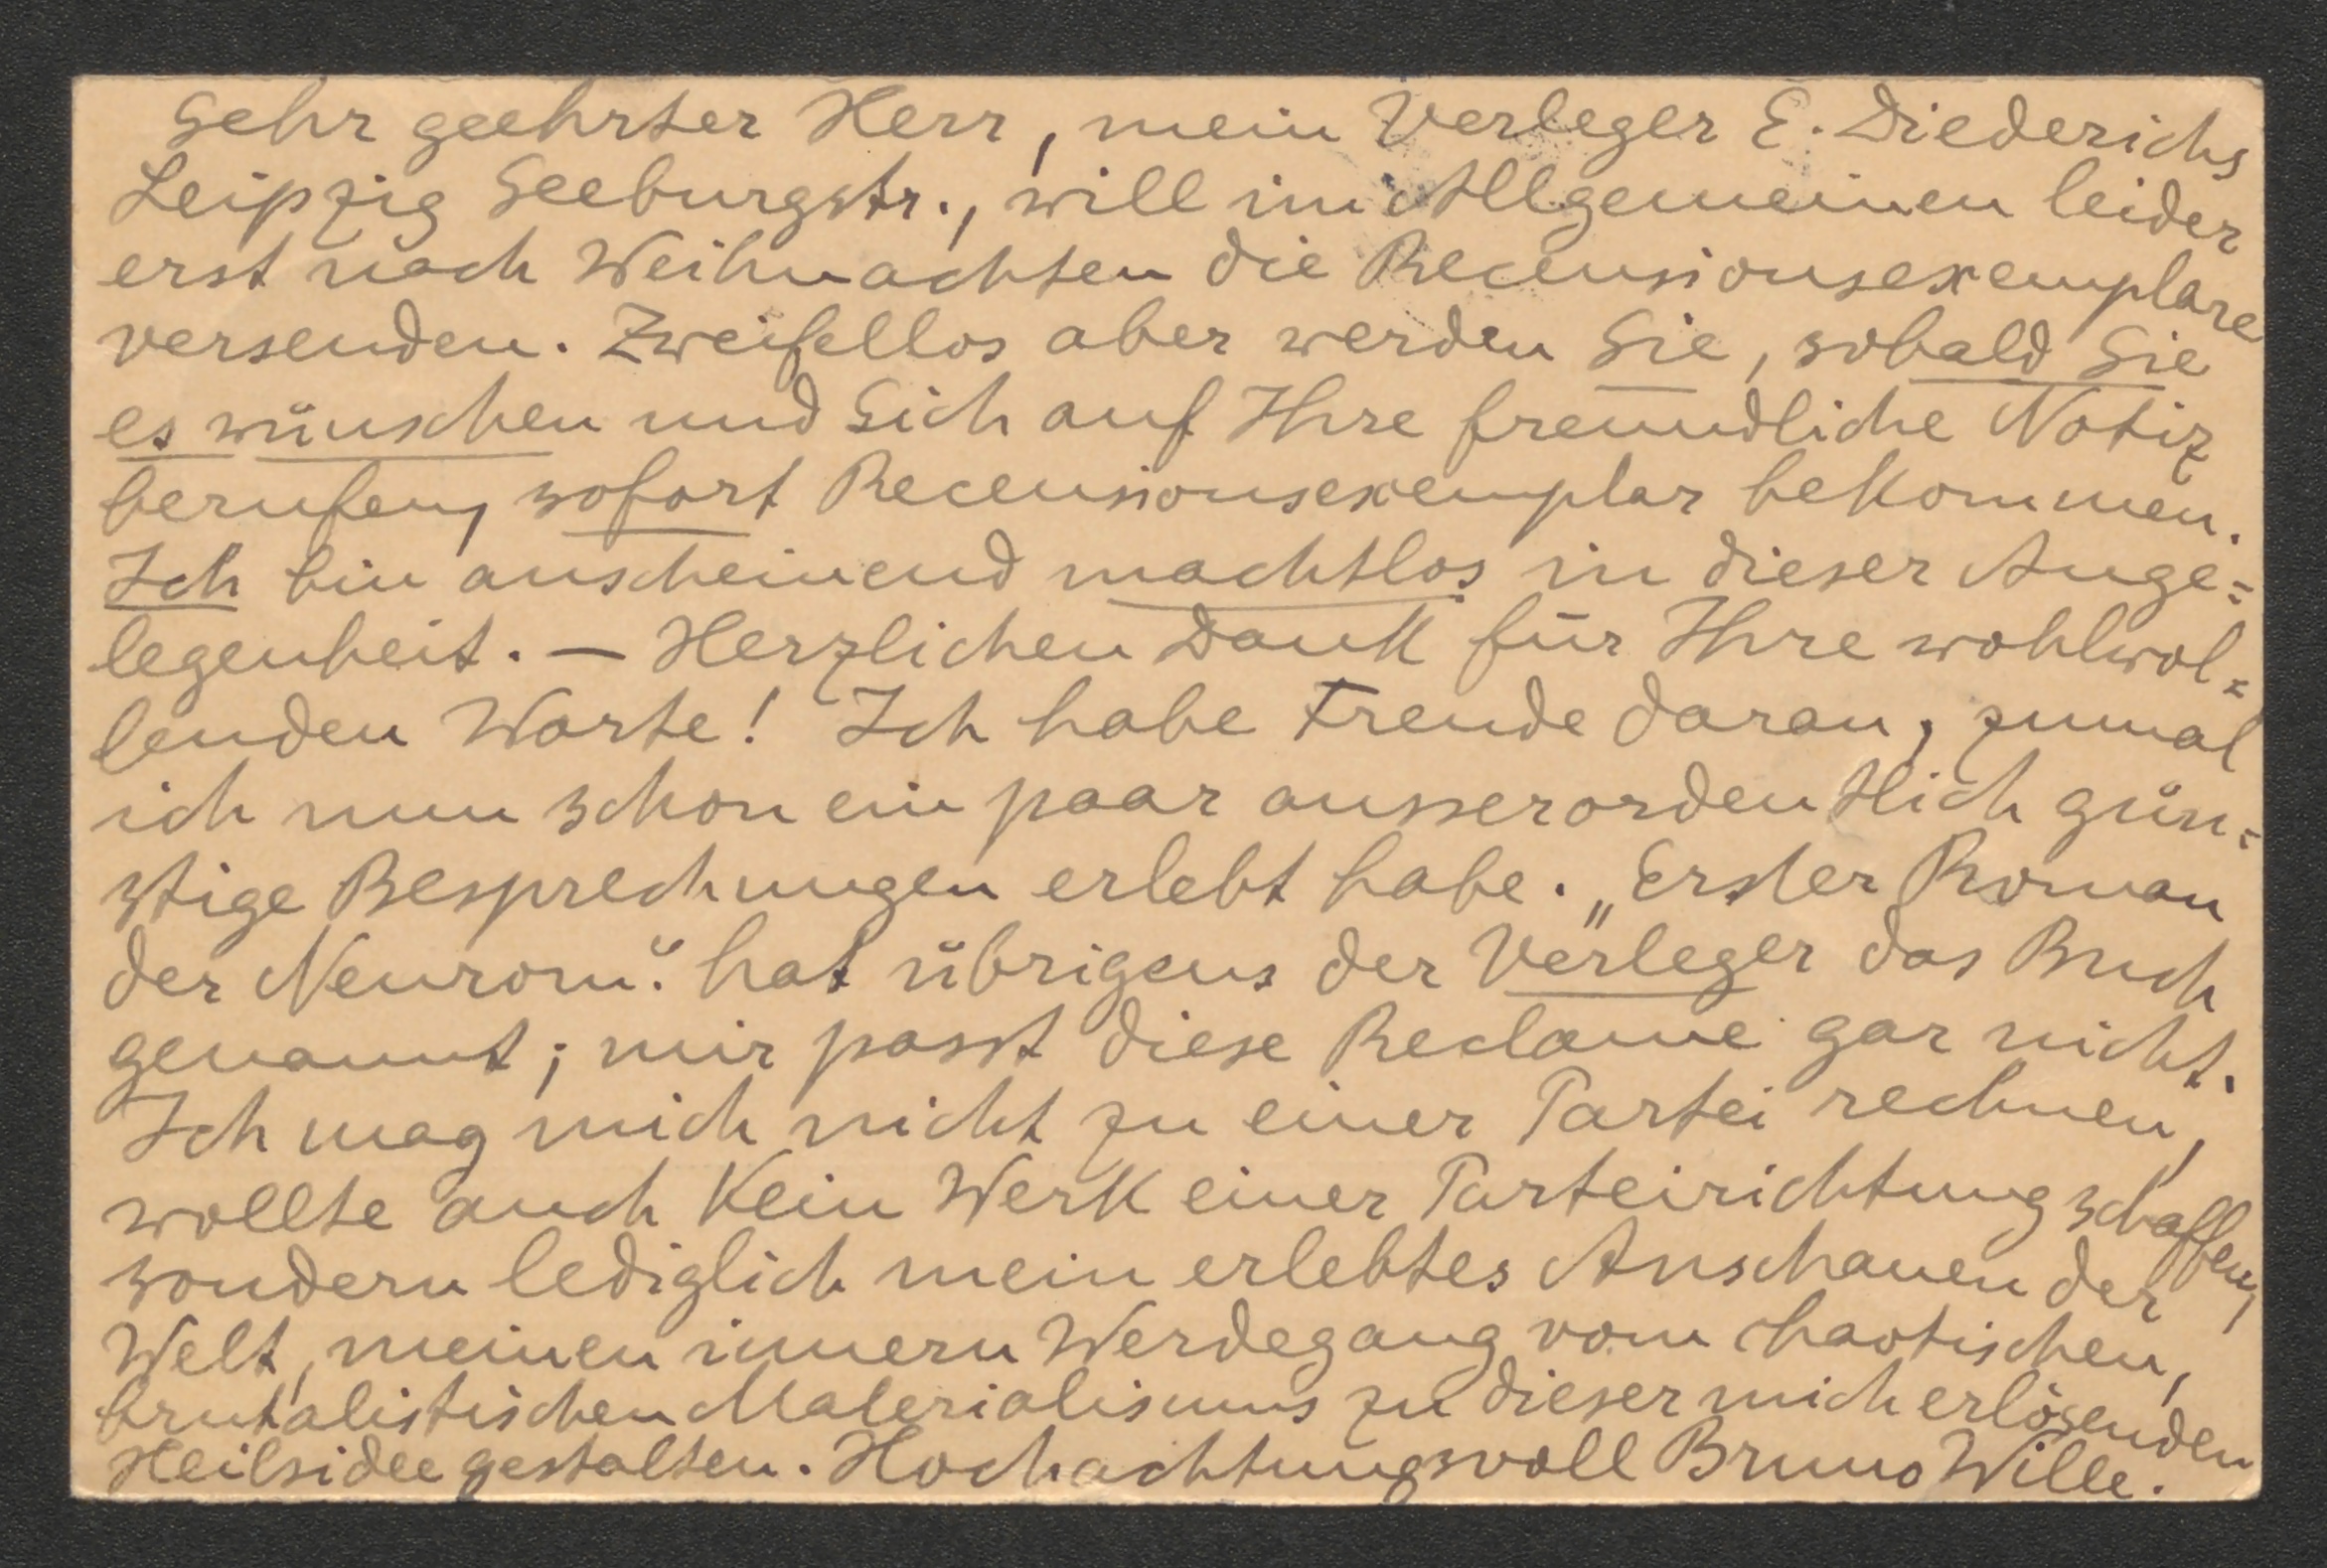 Sehr geehrter Herr, mein Verleger E. Diederichs
Leipzig Seeburgstr., will im Allgemeinen leider
erst nach Weihnachten die Recensionsexemplare
versenden. Zweifellos aber werden Sie, sobald Sie
es wünschen und Sich auf Ihre freundliche Notiz
berufen, sofort Recensionsexemplar bekommen.
Ich bin anscheinend machtlos in dieser Ange=
legenheit. — Herzlichen Dank für Ihre wohlwol=
lenden Worte! Ich habe Freude daran, zumal
ich nun schon ein paar ausserordentlich gün=
stige Besprechungen erlebt habe. „Erster Roman
der Neurom." hat übrigens der Verleger das Buch
genannt; mir passt diese Reclame gar nicht.
Ich mag mich nicht zu einer Partei rechnen,
wollte auch kein Werk einer Parteirichtung schaffen,
sondern lediglich mein erlebtes Anschauen der
Welt, meinen innern Werdegang vom chaotischen,
brutalistischen Materialismus zu dieser mich erlösenden
Heilsidee gestalten. Hochachtungsvoll Bruno Wille.